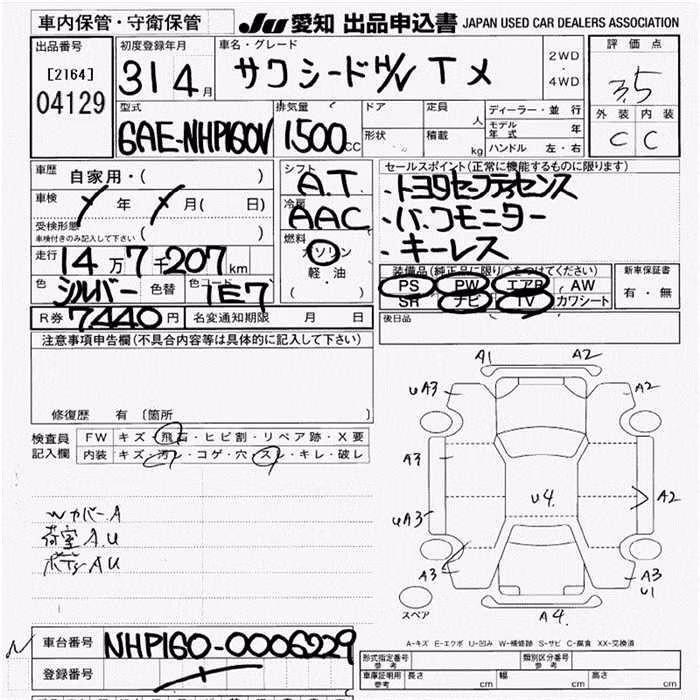 車内保管・守衛保管
JU 愛知 出品申込書 JAPAN USED CAR DEALERS ASSOCIATION
出品番号 初度登録年月 車名・グレード 評価点
[2164] 31 4月 サクシードH/V TX 2WD・4WD 3.5
04129 型式 排気量 ドア 定員 人 ディーラー・並行 外装 内装
6AE-NHP160V 1500cc 形状 積載 kg モデル年式 年 C C
ハンドル 左・右
車歴 自家用・( ) シフト A.T. セールスポイント(正常に機能するものに限ります)
車検 年 月( 日) 冷房 AAC ・トヨタセーフティセンス
受検形態 ( ) ・バックモニター
車検付きのみ記入して下さい 燃料 ガソリン ・キーレス
走行 14万7千207km 軽・油 装備品(純正品に限り○をつけてください) 新車保証書
色 シルバー 色替 色コード 1E7 ( ) PS PW エアB AW 有・無
SR ナビ TV カワシート
R券 7440円 名変通知期限 月 日 後日品
注意事項申告欄(不具合内容等は具体的に記入して下さい)
修復歴 有 〔箇所 〕
検査員記入欄 FW キズ・飛石・ヒビ割・リペア跡・X要
内装 キズ・汚レ・コゲ・穴・スレ・キレ・破レ
A1 A2
UA3 A2
A3
U4. A2
UA3
A3 A3 U1
スペア A4.
Wカバー A
荷室 A.U
ボディ AU
A-キズ E-エクボ U-凹み W-補修跡 S-サビ C-腐食 XX-交換済
車台番号 NHP160-0006229
登録番号
形式指定番号 参考 類別区分番号 参考
車庫証明用 参考 長さ cm 幅 cm 高さ cm